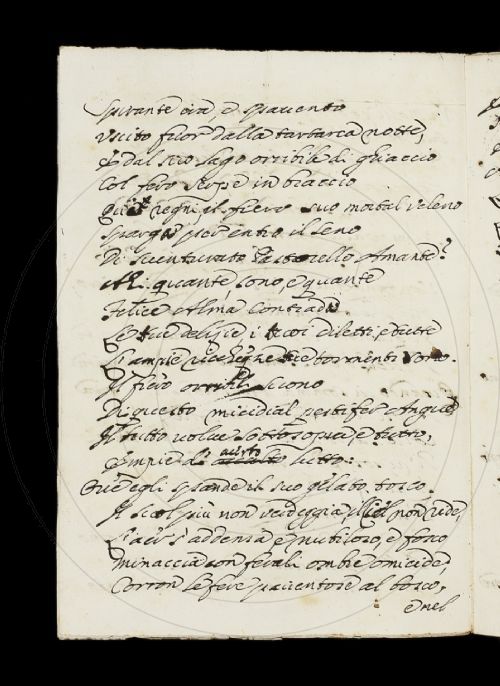 Spirante ira, e spauento
Vscito fuor dalla tartarea notte,
E dal suo lago orribile di ghiaccio
Col fero serpe in braccio
regni il fiero suo mortal ueleno
Sparga per entro il seno
Di suenturato Pastorello Amante?
Ahi quante sono e quante
Felice Alma Contrada
Le tue delizie i tuoi diletti, e tutte
Il fiero orribil suono
Di questo micidial pestifer Angue
Il tutto uolue sottosopra, e tutto,
Empie di lutto:
Oue egli spande il suo gelato tosco
Il suol più non uerdeggia, il Ciel non ride,
L'aer s'addensa, e nubiloso, e fosco
Minaccia con ferali ombre omicide,
Corron le fere pauentose al bosco,
e nel